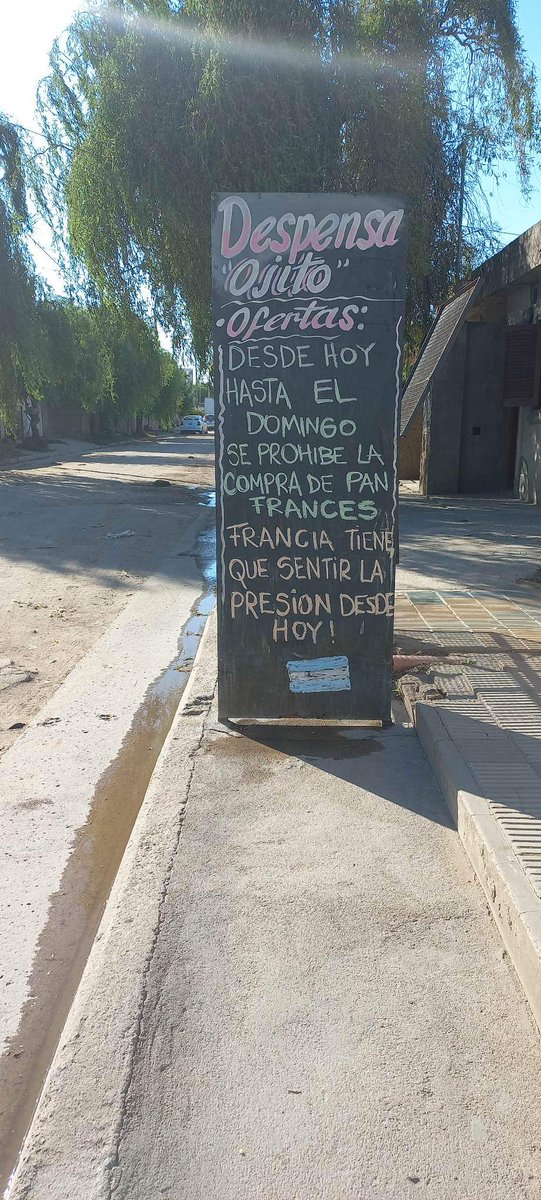 Despensa
"Osito"
· Ofertas:
DESDE HOY
HASTA EL
DOMINGO
SE PROHIBE LA
COMPRA DE PAN
FRANCES
FRANCIA TIENE
QUE SENTIR LA
PRESION DESDE
HOY!